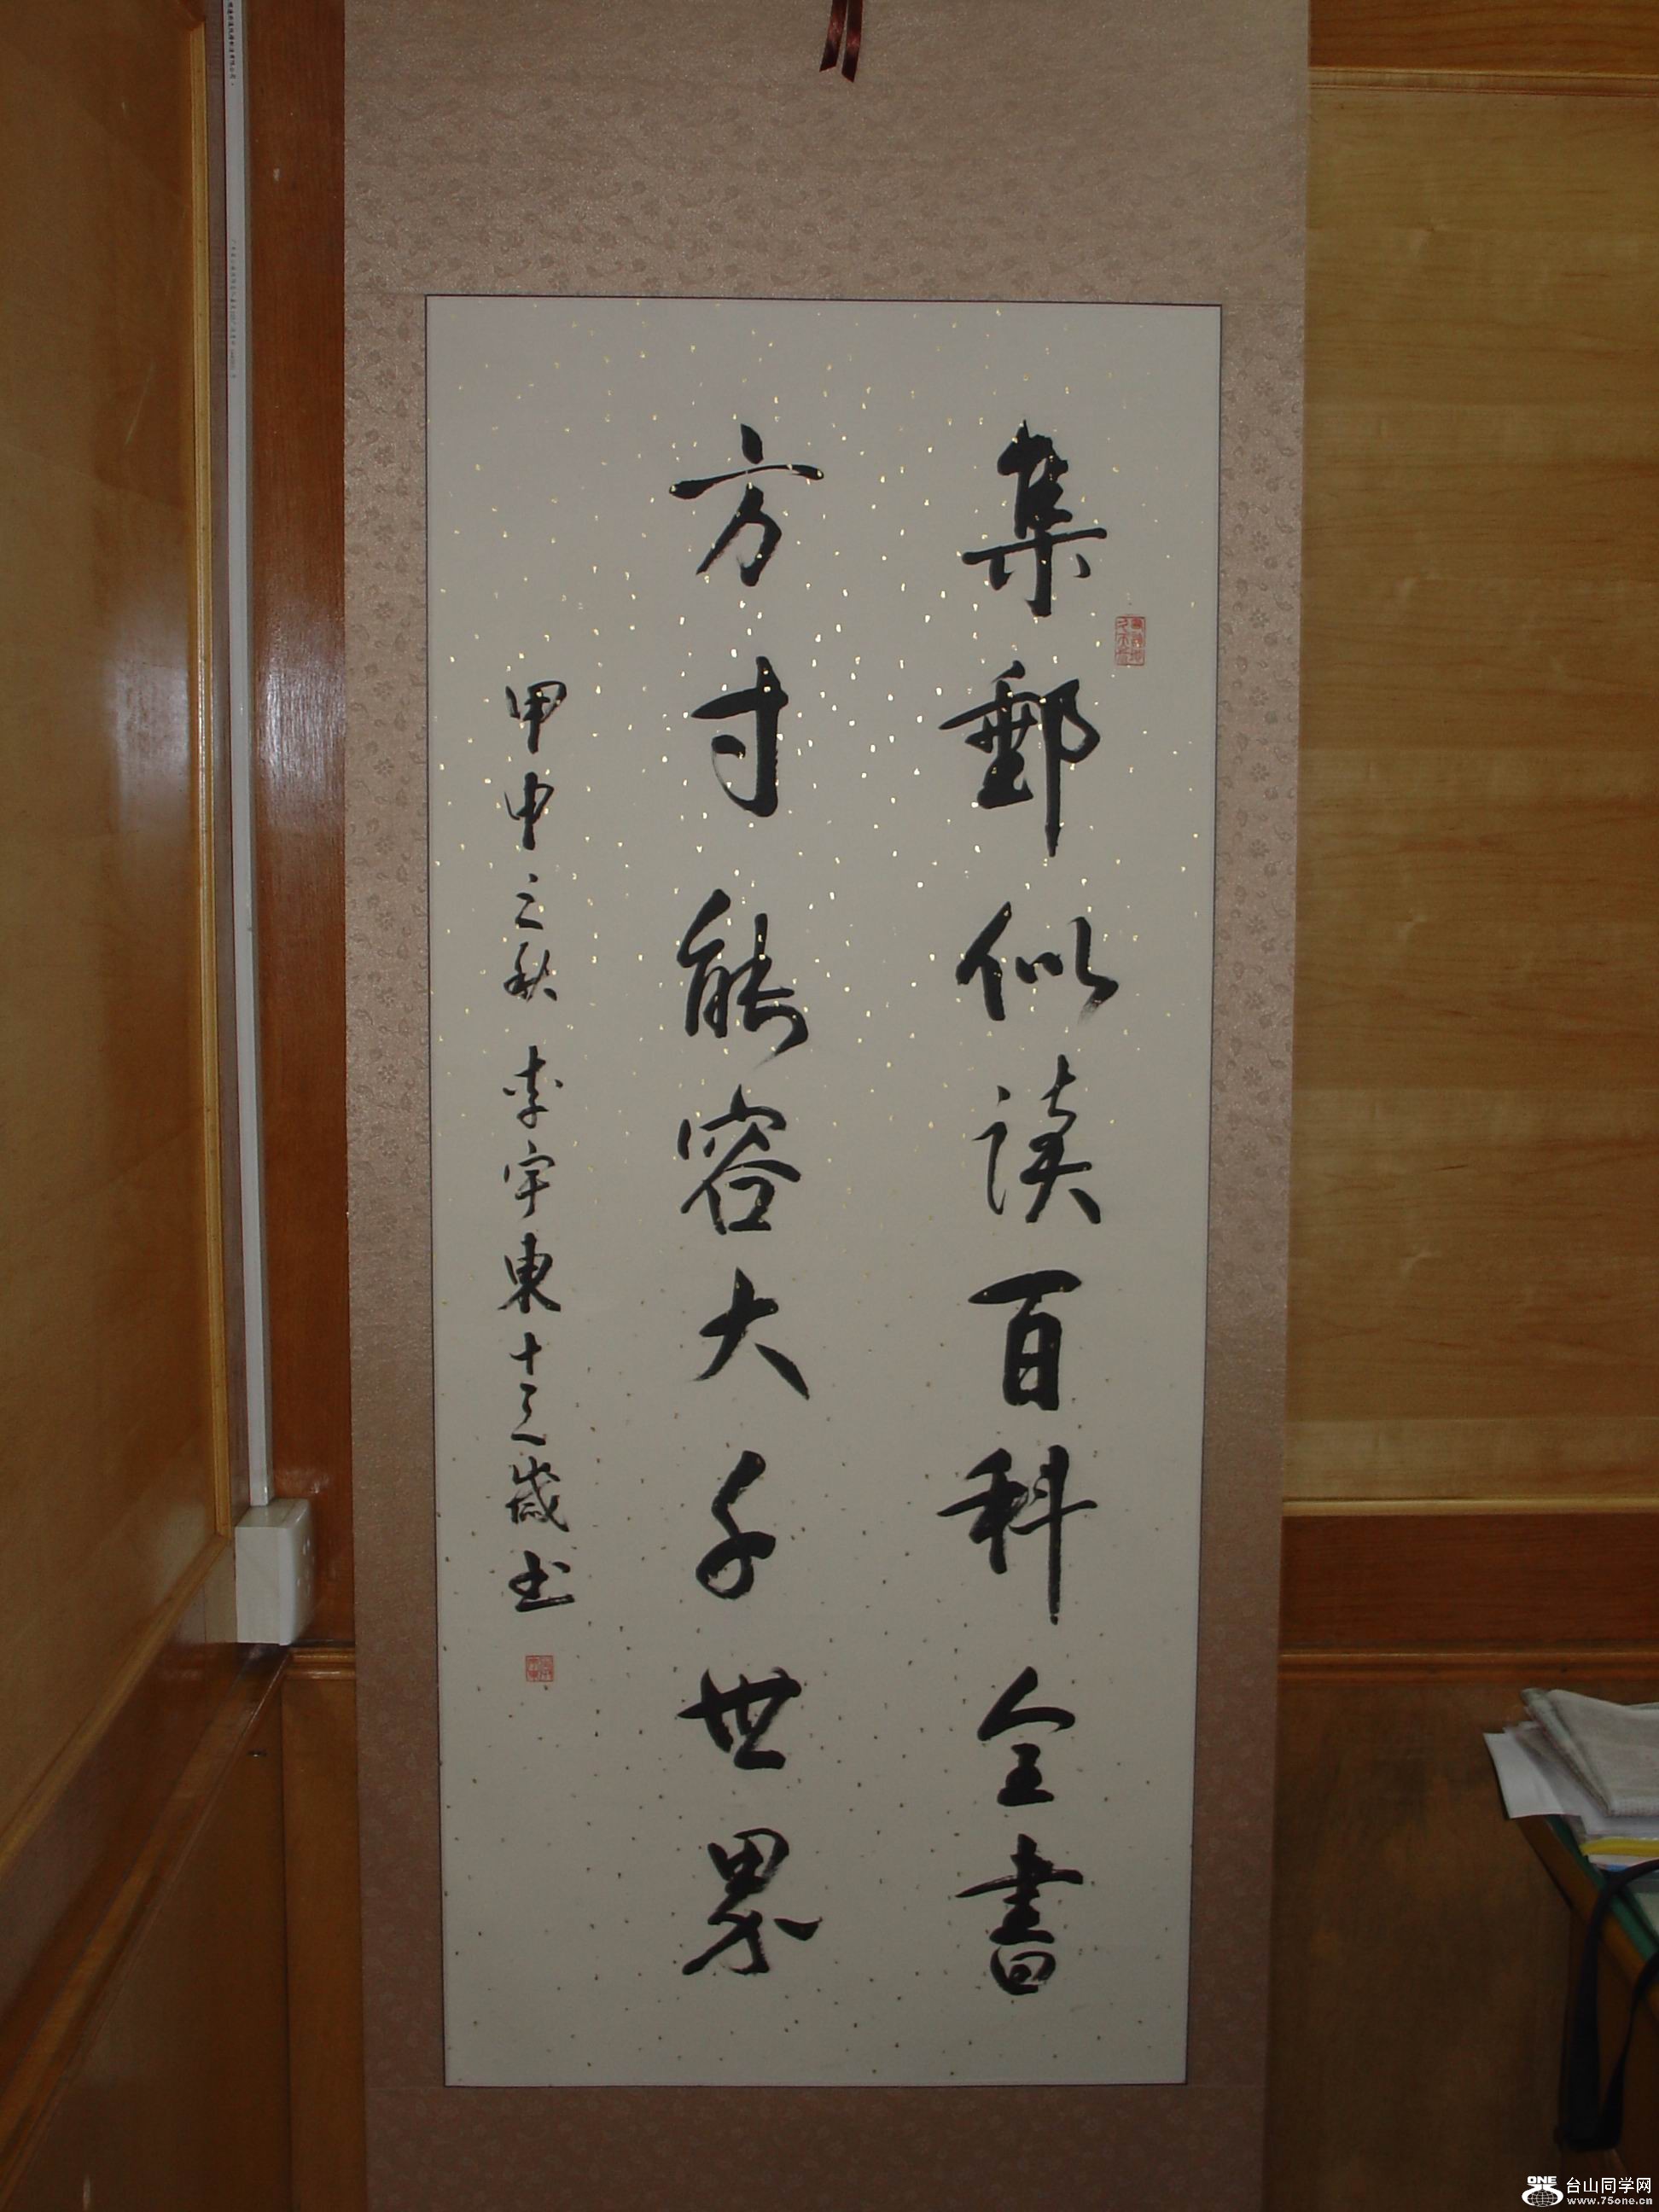 集郵似读百科全書
方寸能容大千世界
甲申之秋 李宇東十三歲书
ONE 台山同学网
www.75one.cn